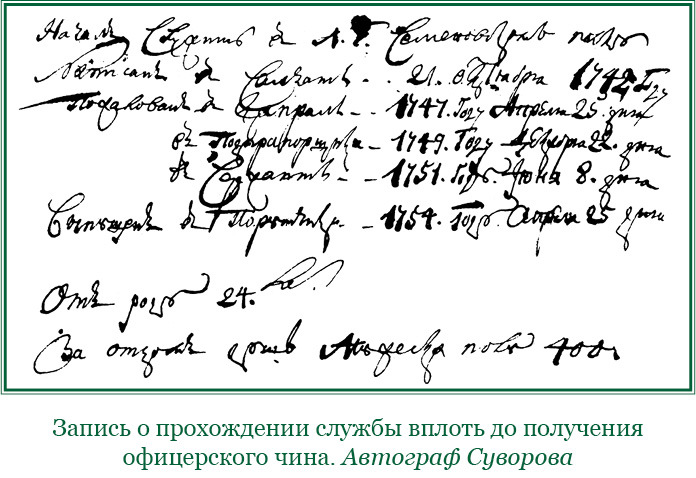 Началъ Служить в Л. Г. Семеновском полку
в Салдаты - - 21. Октября 1742 Году
Пожалованъ в Капралы - - 1747. Году Апреля 25. дня
въ Подпрапорщики - - 1749. Году 22. дня
въ Сержанты - - 1751. Году. Июня 8. дня
Выпущенъ в Порутчики - - 1754. Году. Апреля 25 дня
Отъ роду 24.
За отцомъ душъ Мужеска полу 400.
Запись о прохождении службы вплоть до получения
офицерского чина. Автограф Суворова